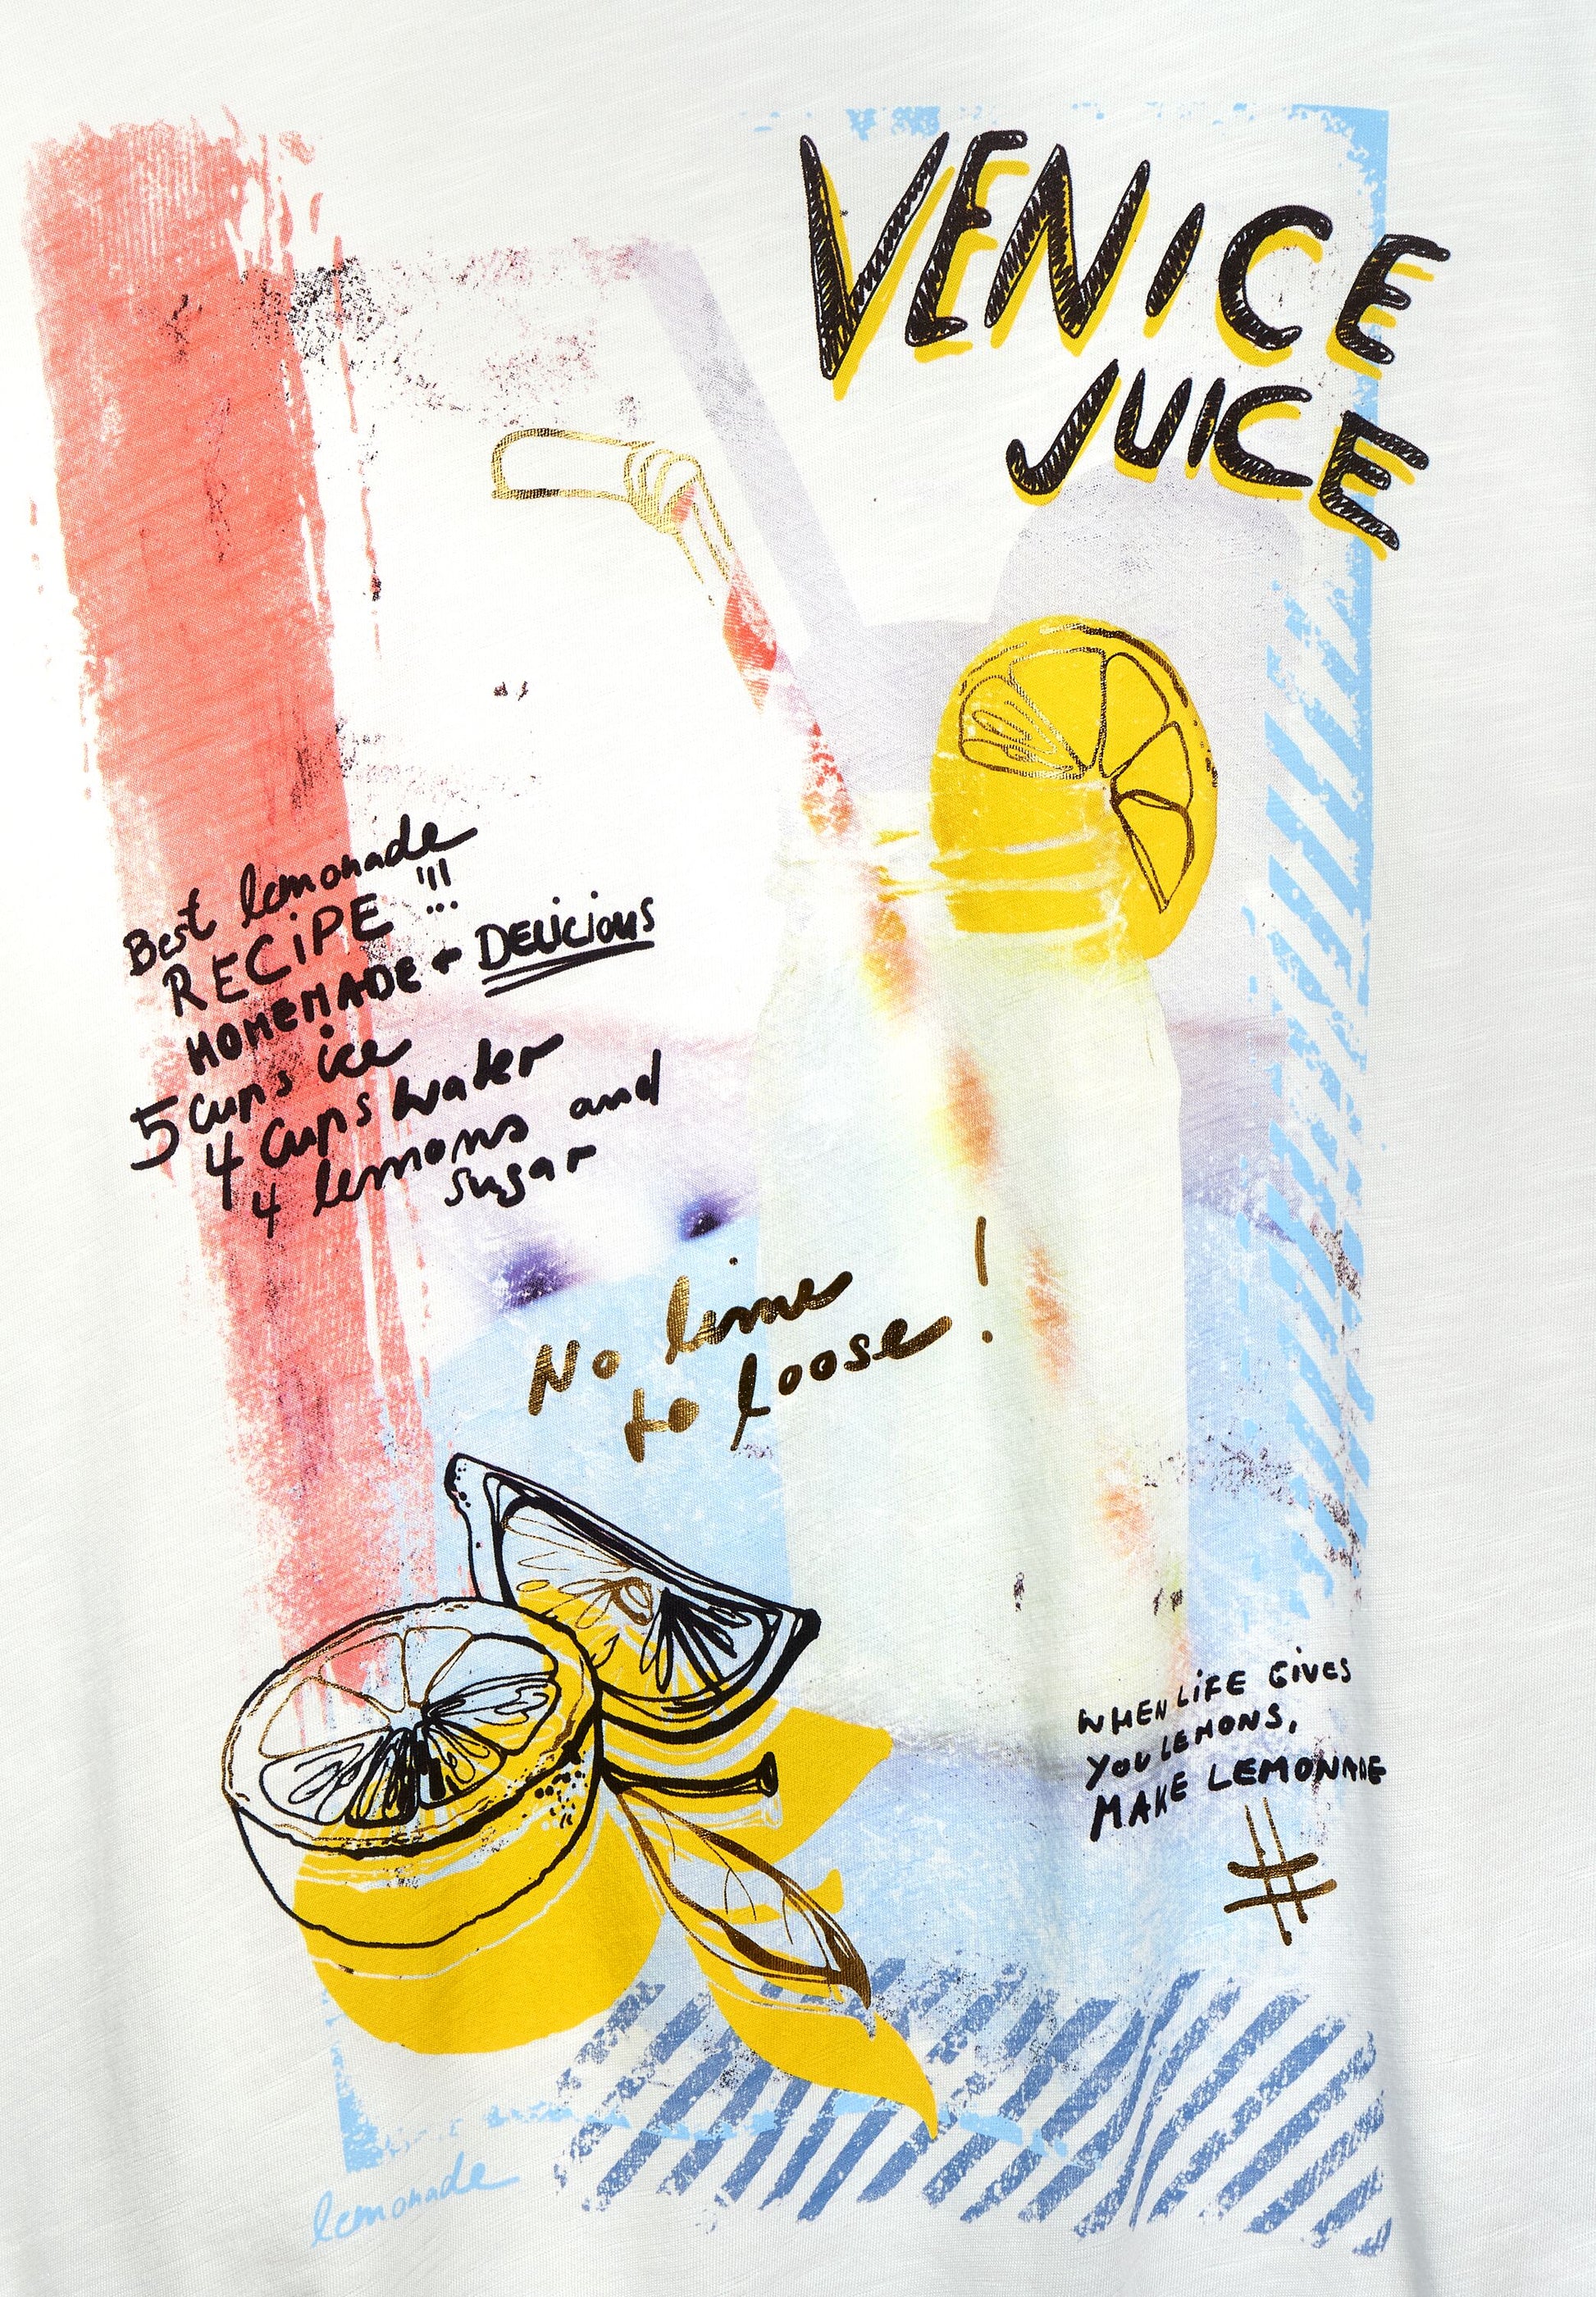 VENICE
JUICE
Best lemonade
RECiPE !!!
HOMEMADE + DELicious
5 cups ice
4 cups water
4 lemons and
sugar
No lime
to loose!
WHEN LiFE GiVES
YOU LEMONS,
MAKE LEMONADE
#
lemonade